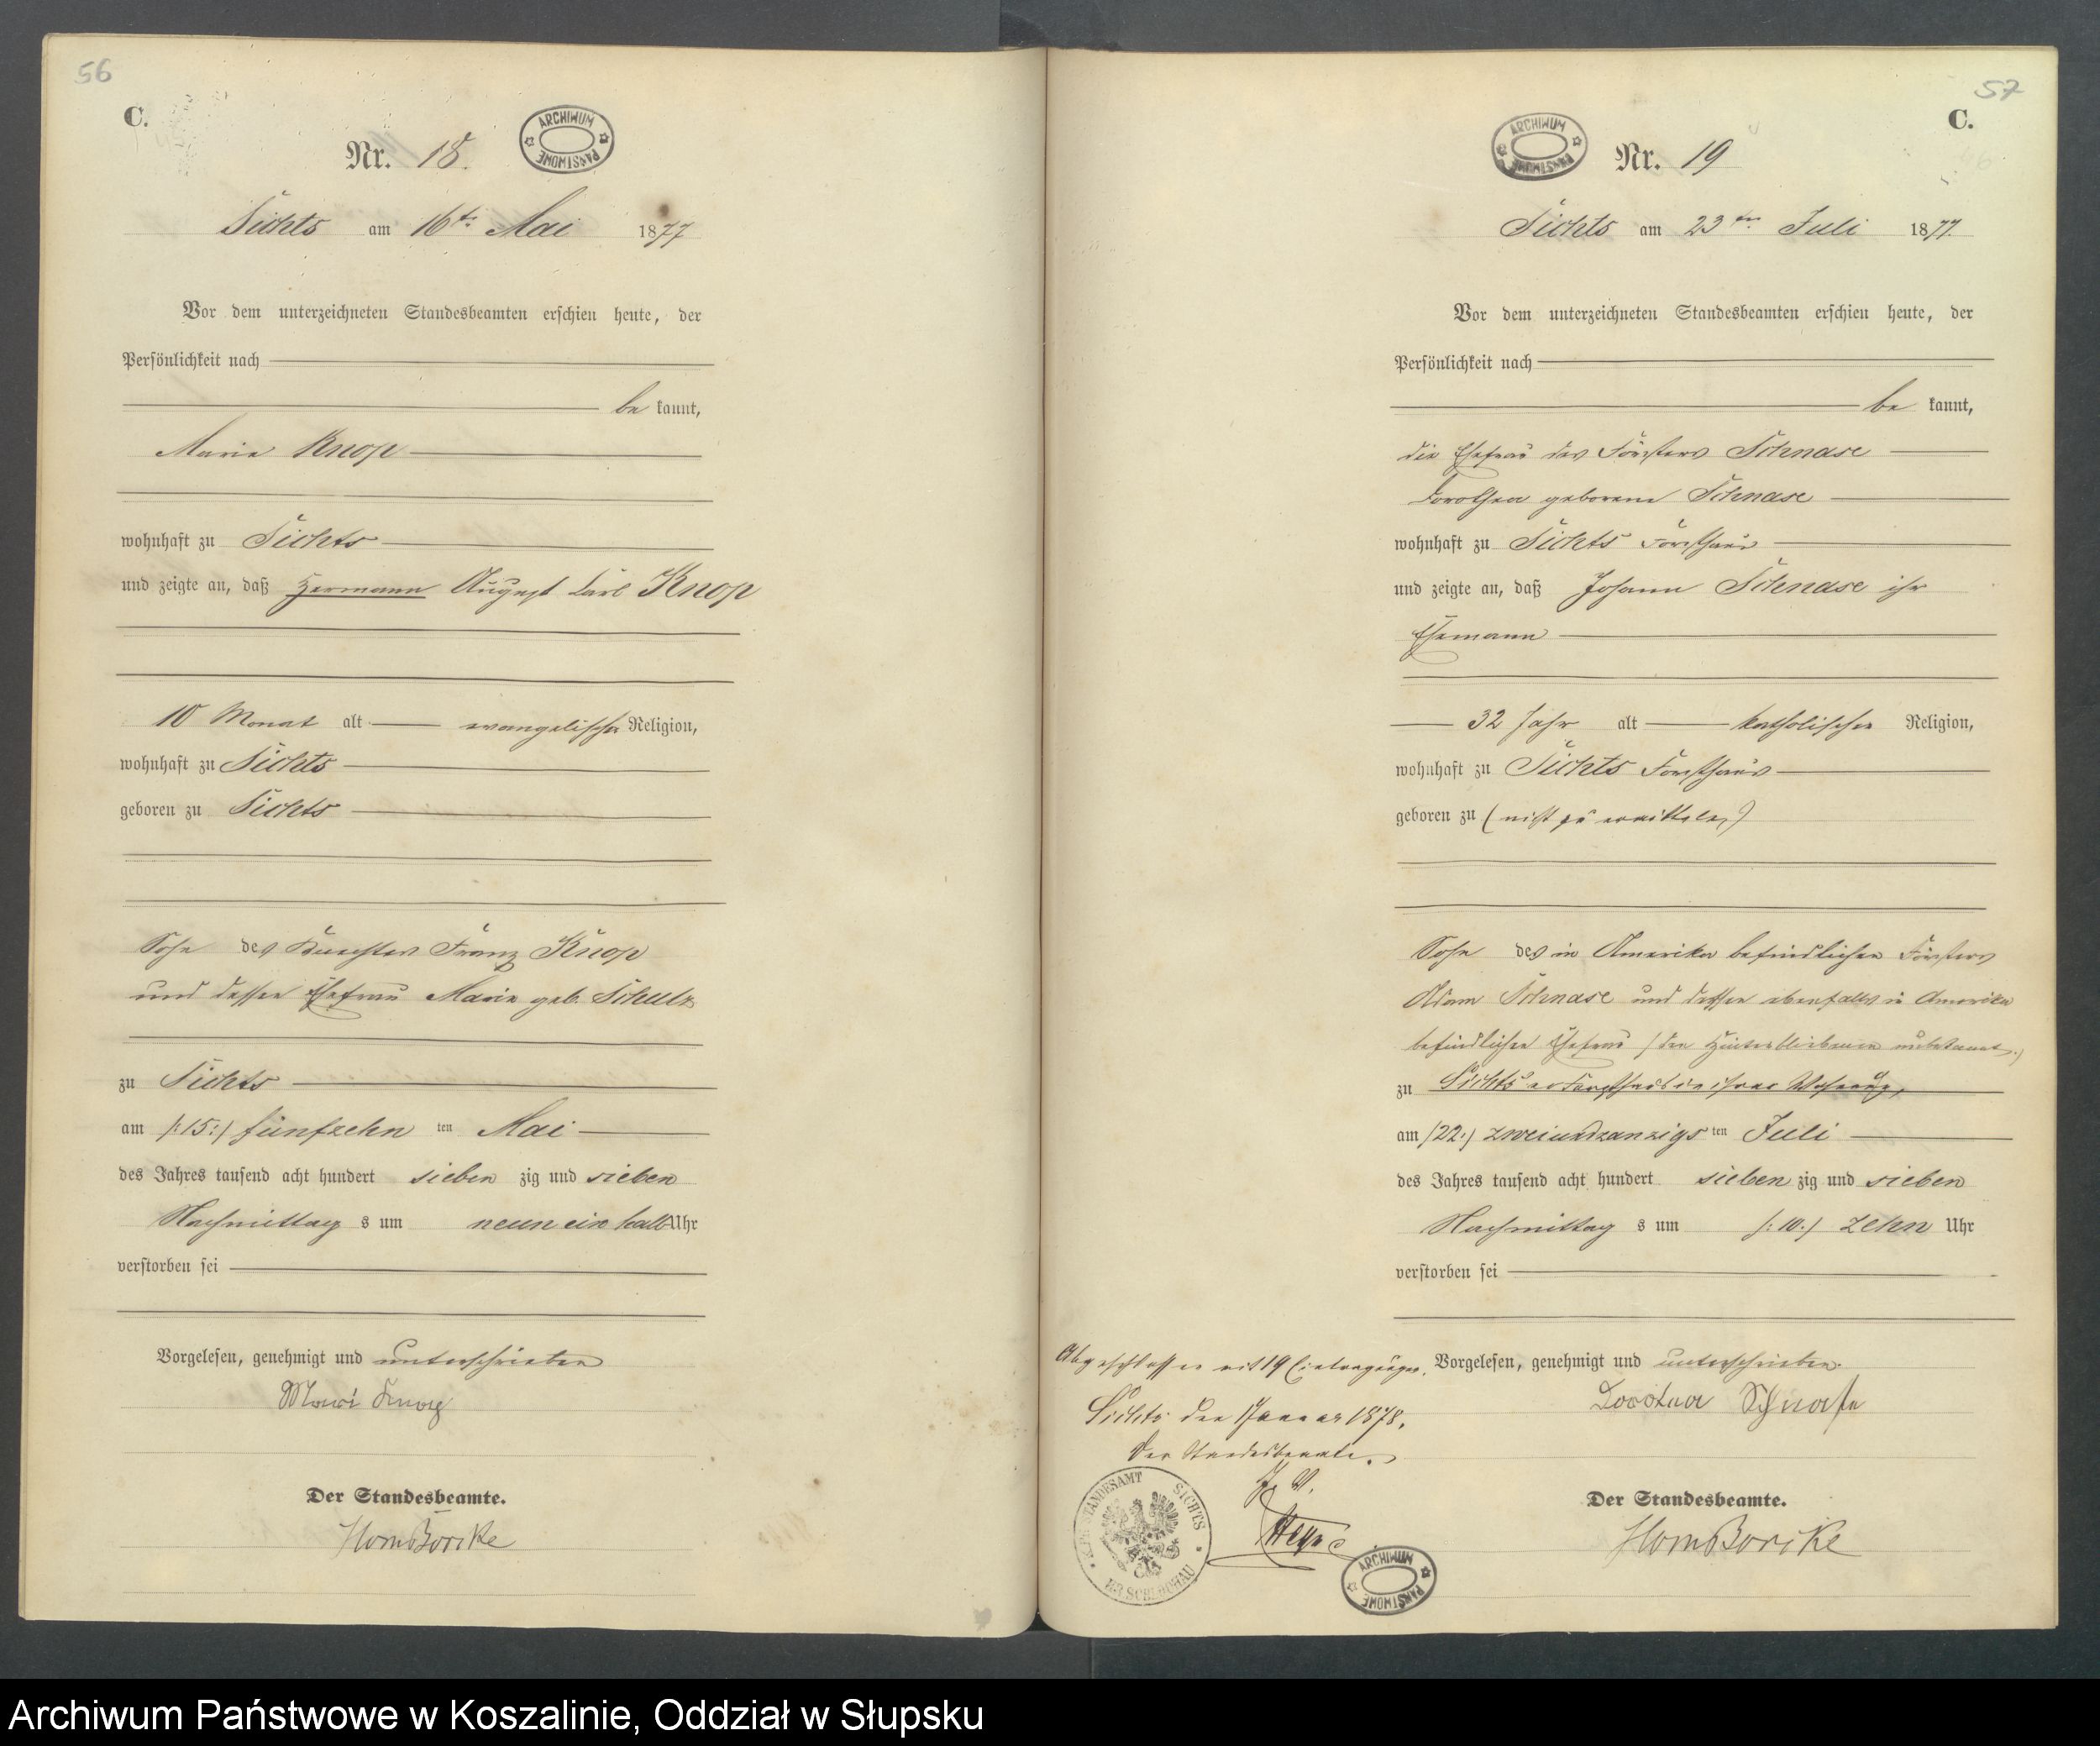 56
C.
ARCHIWUM PAŃSTWOWE
Nr. 18.
Sichts am 16t. Mai 1877
Vor dem unterzeichneten Standesbeamten erschien heute, der
Persönlichkeit nach
be kannt,
Marie Knop
wohnhaft zu Sichts
und zeigte an, daß Hermann August Carl Knop
10 Monat alt evangelischer Religion,
wohnhaft zu Sichts
geboren zu Sichts
Sohn des Franz Knop
und dessen Ehefrau Marie geb. Schulz
zu Sichts
am /:15:/ fünfzehn ten Mai
des Jahres tausend acht hundert sieben zig und sieben
Nachmittag s um neun ein halb Uhr
verstorben sei
Vorgelesen, genehmigt und unterschrieben
Mari Knop
Der Standesbeamte.
57
C.
ARCHIWUM PAŃSTWOWE
Nr. 19
Sichts am 23ten Juli 1877.
Vor dem unterzeichneten Standesbeamten erschien heute, der
Persönlichkeit nach
be kannt,
die Ehefrau des Försters Schnase
Dorothea geborene Schnase
wohnhaft zu Sichts Forsthaus
und zeigte an, daß Johann Schnase ihr
Ehemann
32 Jahr alt katholischer Religion,
wohnhaft zu Sichts Forsthaus
geboren zu (nicht zu ermitteln)
Sohn des in Amerika befindlichen Försters
Adam Schnase und dessen ebenfalls in Amerika
befindlichen Ehefrau /den Hinterbliebenen unbekannt./
zu Sichts im Forsthaus in ihrer Wohnung,
am /22:/ zweiundzanzigs ten Juli
des Jahres tausend acht hundert sieben zig und sieben
Nachmittag s um /:10:/ zehn Uhr
verstorben sei
Vorgelesen, genehmigt und unterschrieben.
Dorotea Schnase
Der Standesbeamte.
Abgeschlossen mit 19 Eintragungen.
Sichts den Januar 1878.
Der Standesbeamte.
J. V.
STANDESAMT SICHTS KR. SCHLOCHAU
ARCHIWUM PAŃSTWOWE
Archiwum Państwowe w Koszalinie, Oddział w Słupsku